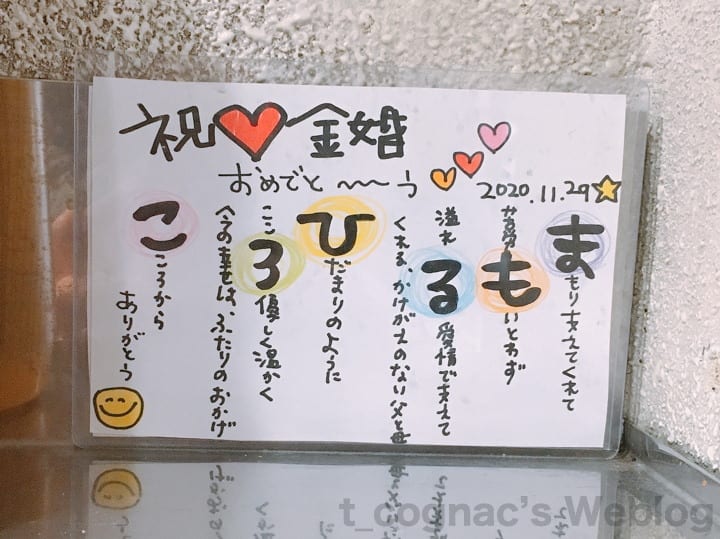 祝♥金婚
おめでと〜〜う
2020.11.29
まもり支えてくれて
苦労もいとわず
溢れる愛情で支えて
くれる、かけがえのない父と母
ひだまりのように
こころ優しく温かく
今の幸せは、ふたりのおかげ
こころから
ありがとう
t_cognac's Weblog